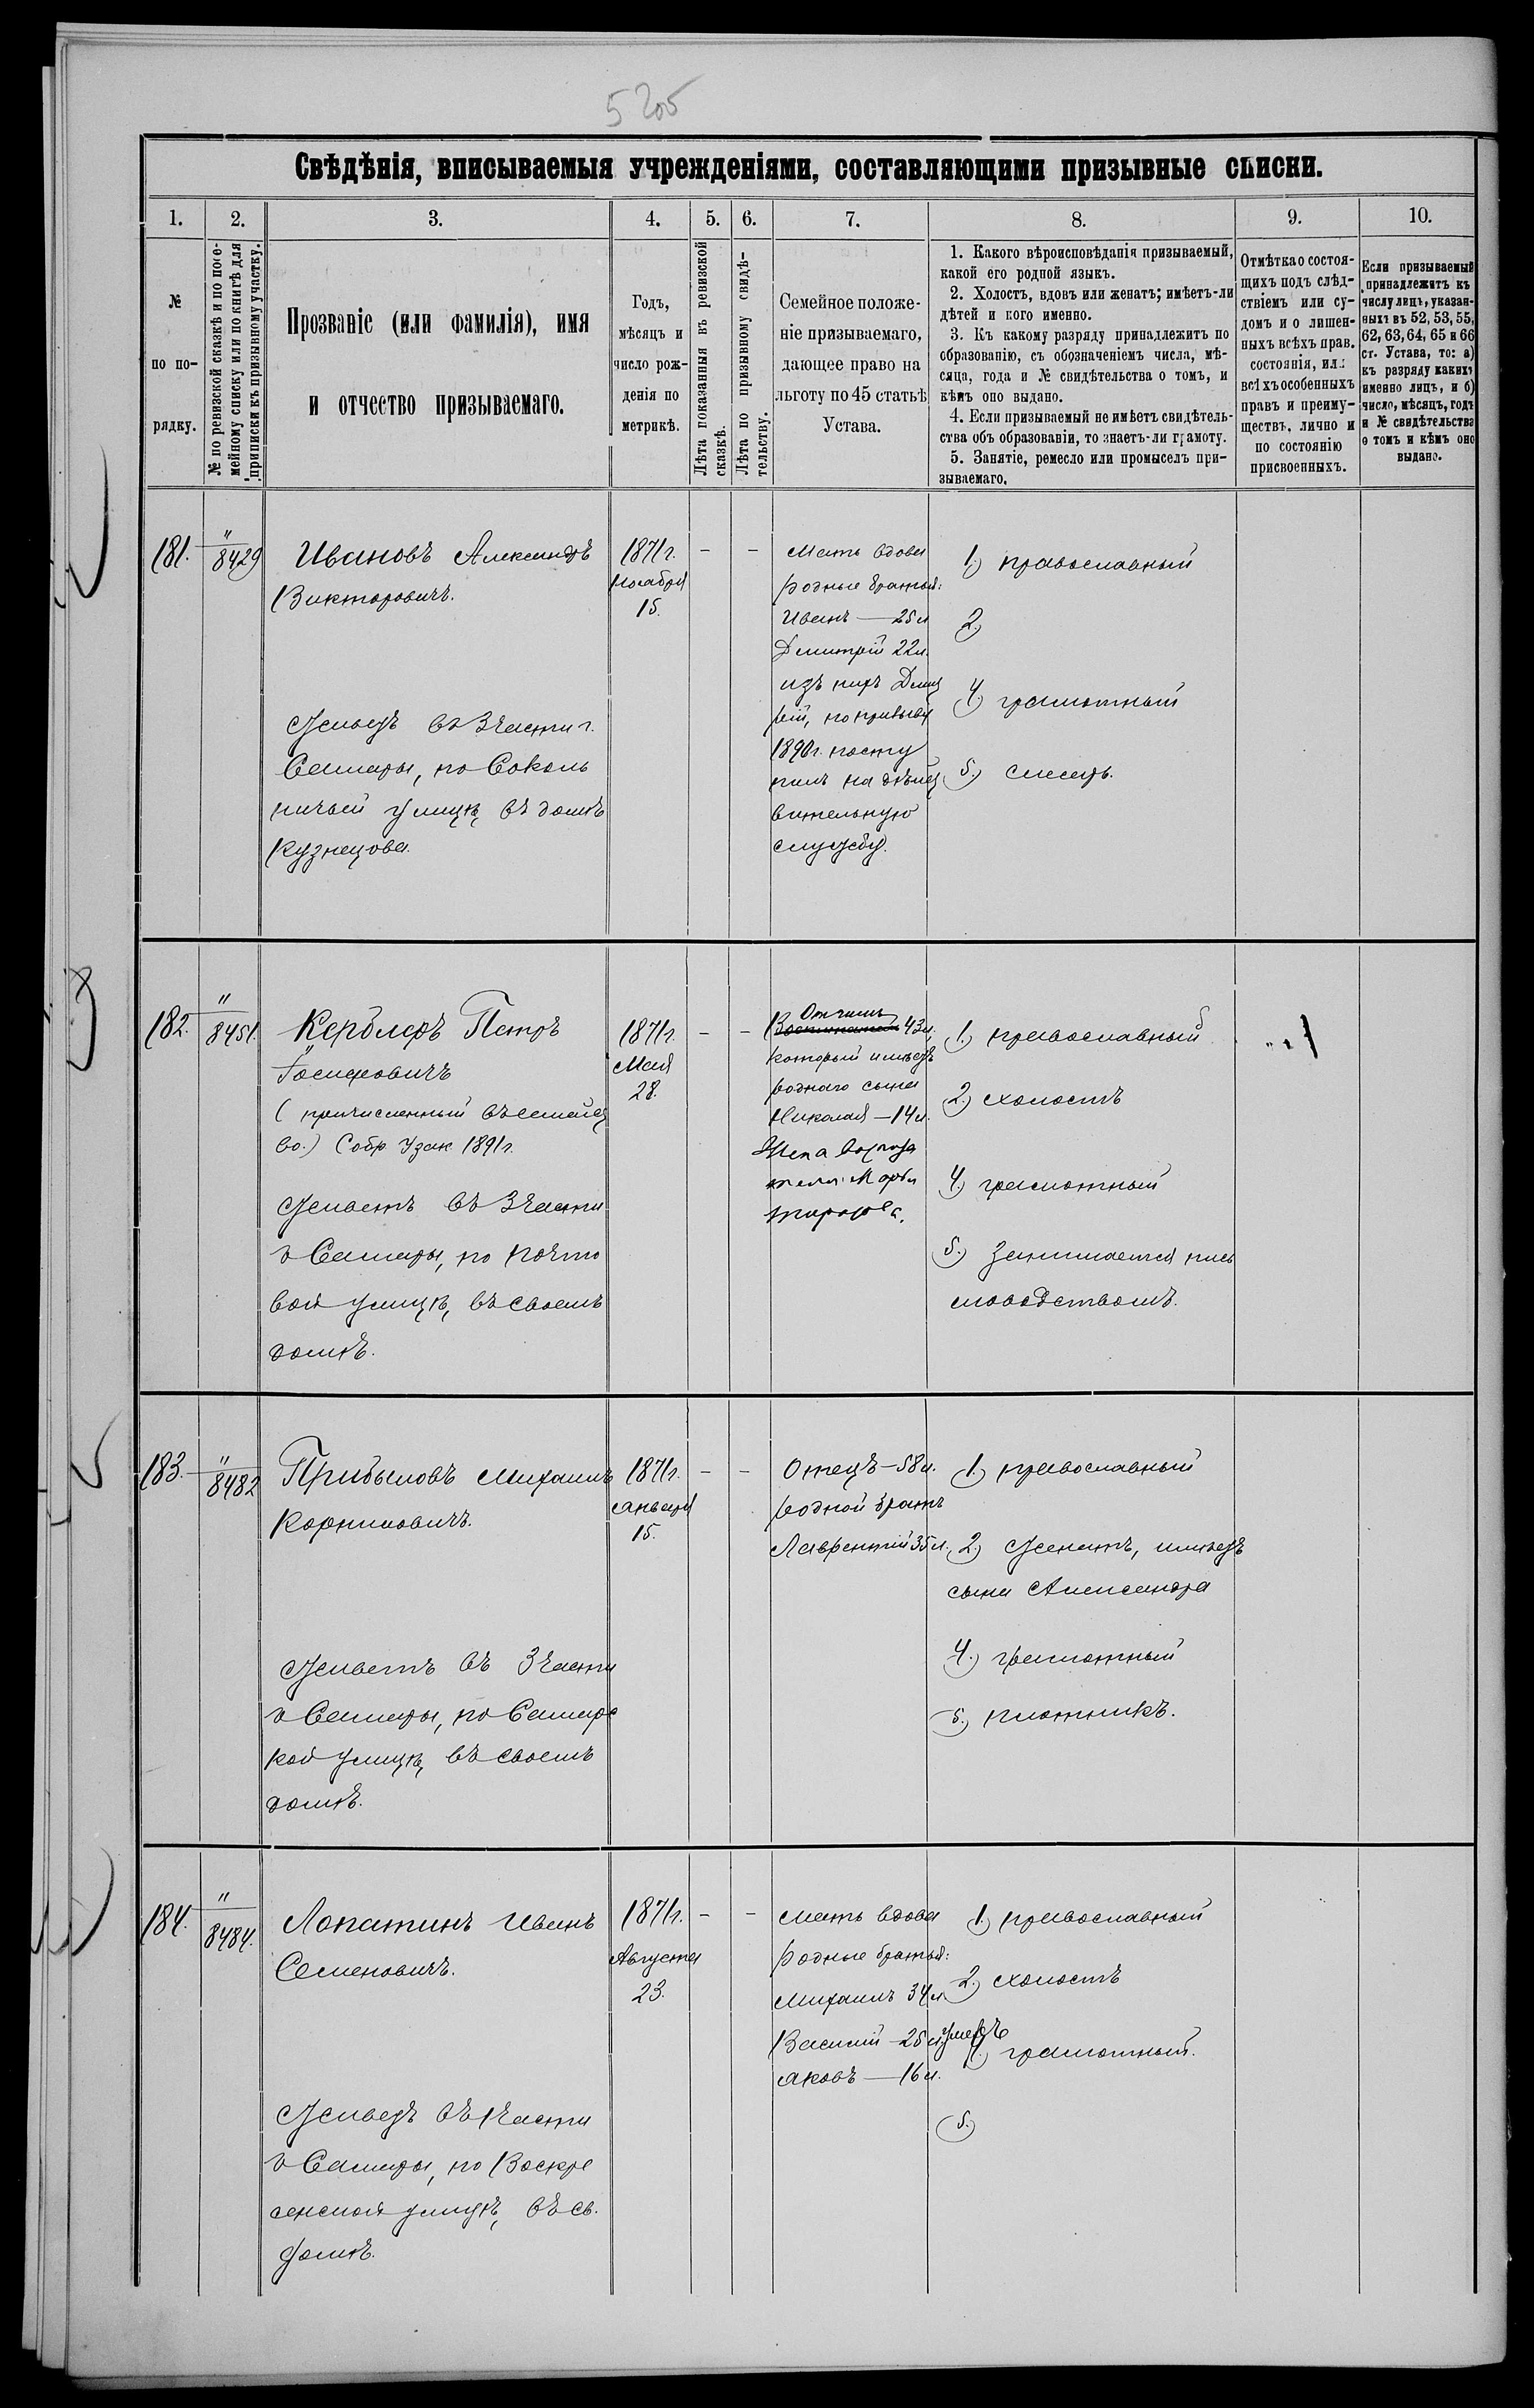 5205
Свѣдѣнія, вписываемыя учрежденіями, составляющими призывные списки.
1. 2. 3. 4. 5. 6. 7. 8. 9. 10.
№
по по-
рядку.
№ по ревизской сказкѣ и по посе-
мейному списку или по книгѣ для
приписки къ призывному участку.
Прозваніе (или фамилія), имя
и отчество призываемаго.
Годъ,
мѣсяцъ и
число рож-
денія по
метрикѣ.
Лѣта показанныя въ ревизской
сказкѣ.
Лѣта по призывному свидѣ-
тельству.
Семейное положе-
ніе призываемаго,
дающее право на
льготу по 45 статьѣ
Устава.
1. Какого вѣроисповѣданія призываемый,
какой его родной языкъ.
2. Холостъ, вдовъ или женатъ; имѣетъ-ли
дѣтей и кого именно.
3. Къ какому разряду принадлежитъ по
образованію, съ обозначеніемъ числа, мѣ-
сяца, года и № свидѣтельства о томъ, и
кѣмъ оно выдано.
4. Если призываемый не имѣетъ свидѣтель-
ства объ образованіи, то знаетъ-ли грамоту.
5. Занятіе, ремесло или промыселъ при-
зываемаго.
Отмѣтка о состоя-
щихъ подъ слѣд-
ствіемъ или су-
домъ и о лишен-
ныхъ всѣхъ прав.
состоянія, или
всѣхъ особенныхъ
правъ и преиму-
ществъ, лично и
по состоянію
присвоенныхъ.
Если призываемый
принадлежитъ къ
числу лицъ, указан-
ныхъ въ 52, 53, 55,
62, 63, 64, 65 и 66
ст. Устава, то: а)
къ разряду какихъ
именно лицъ, и б)
число, мѣсяцъ, годъ
и № свидѣтельства
о томъ и кѣмъ оно
выдано.
181.
"
8429
Ивановъ Александръ
Викторовичъ.
Живетъ въ 3 части г.
Самары, по Соколь
ничьей улицѣ, въ домѣ
Кузнецова.
1871 г.
Ноября
15.
–
–
Мать вдова
родные братья:
Иванъ — 25 л
Дмитрій 22 л.
изъ нихъ Дмит
рій, по призыву
1890 г. посту
пилъ на дѣйст
вительную
службу.
1.) православный
2.)
4.) грамотный
5.) слесарь.
182.
"
8451.
Керблеръ Петръ
Іосифовичъ
(причисленный въ семейст
во.) Собр Узак 1891 г.
Живетъ въ 3 части
г Самары, по Почто
вой улицѣ, въ своемъ
домѣ.
1871 г.
Мая
28.
–
–
Отчимъ
43 л.
который имѣетъ
роднаго сына
Николая — 14 л.
Жена воспита
теля: Марья
1.) православный
2.) холостъ
4.) грамотный
5.) Занимается пись
моводствомъ.
183.
"
8482
Прибыловъ Михаилъ
Корниловичъ.
Живетъ въ 3 части
г Самары, по Самарс
кой улицѣ, въ своемъ
домѣ.
1871 г.
Января
15.
–
–
Отецъ — 58 л.
родной братъ
Лаврентій 35 л.
1.) православный
2.) Женатъ, имѣетъ
сына Александра
4.) грамотный
5.) плотникъ.
184.
"
8484.
Лопатинъ Иванъ
Семеновичъ.
Живетъ въ 1 части
г Самары, по Воскре
сенской улицѣ, въ св.
домѣ.
1871 г.
Августа
23.
–
–
Мать вдова
родные братья:
Михаилъ 34 л
Василій — 25 л. умеръ
Яковъ — 16 л.
1.) православный
2.) холостъ
4.) грамотный.
5.)